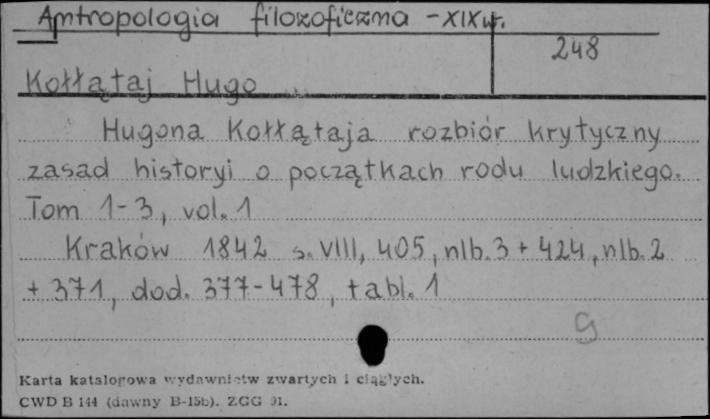 Antropologia filozoficzna - XIX w.
248
Kołłątaj Hugo
Hugona Kołłątaja rozbiór krytyczny
zasad historyi o początkach rodu ludzkiego.
Tom 1-3, vol. 1
Kraków 1842 s. VIII, 405, nlb. 3 + 424, nlb. 2
+ 371, dod. 377-478, tabl. 1
g
Karta katalogowa wydawnictw zwartych i ciągłych.
CWD B 144 (dawny B-15b). ZGG 91.